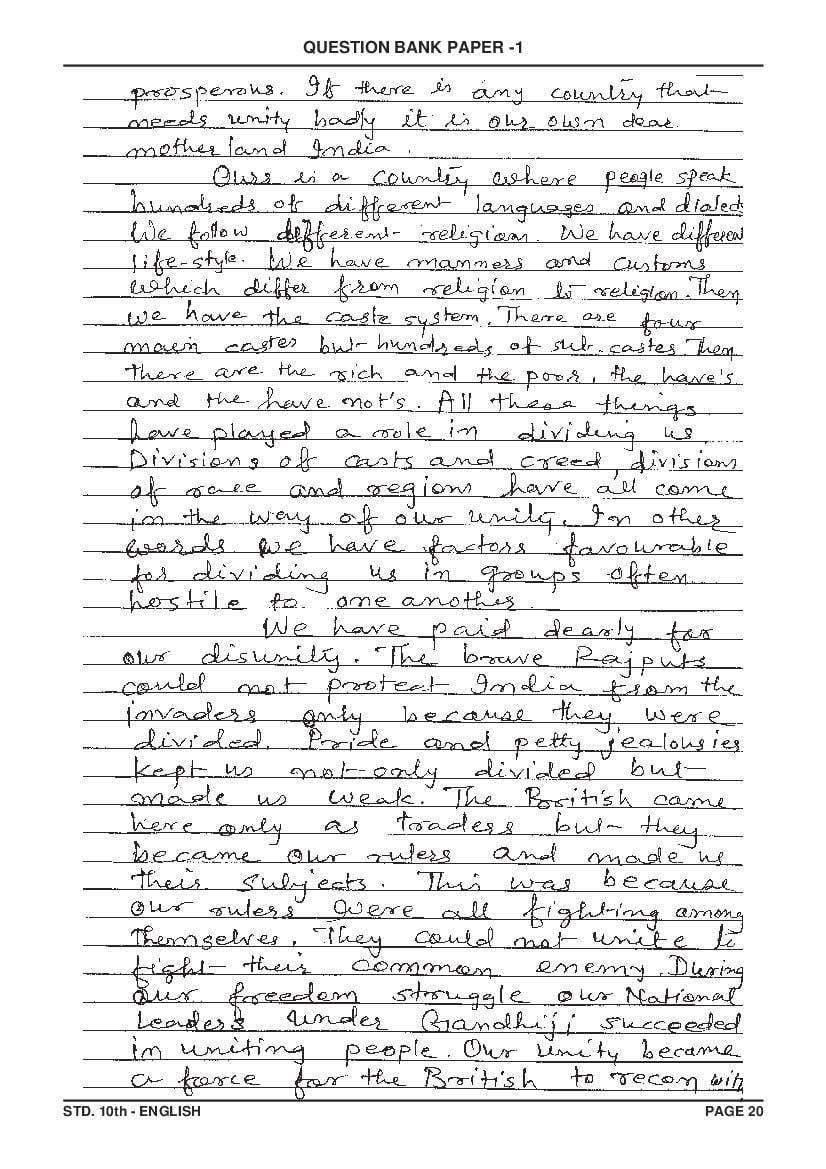 QUESTION BANK PAPER -1
prosperous. If there is any country that
needs unity badly it is our own dear
motherland India.
Ours is a country where people speak
hundreds of different languages and dialect
We follow different religion. We have different
life-style. We have manners and customs
which differ from religion to religion. Then
we have the caste system. There are four
main castes but hundreds of sub-castes. Then
there are the rich and the poor, the have's
and the have not's. All these things
have played a role in dividing us
Divisions of casts and creed, divisions
of race and regions have all come
in the way of our unity. In other
words we have factors favourable
for dividing us in groups often
hostile to one another.
We have paid dearly for
our disunity. The brave Rajputs
could not protect India from the
invaders only because they were
divided. Pride and petty jealousies
kept us not only divided but
made us weak. The British came
here only as traders but they
became our rulers and made us
their subjects. This was because
our rulers were all fighting among
themselves. They could not unite to
fight their common enemy. During
our freedom struggle our National
Leaders under Gandhiji succeeded
in uniting people. Our unity became
a force for the British to recon with
STD. 10th - ENGLISH PAGE 20